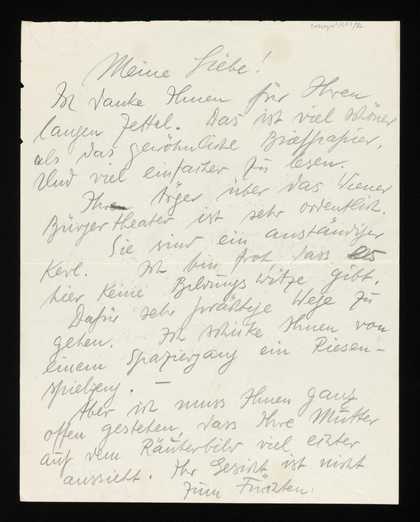 Meine Liebe!
Ich danke Ihnen für Ihren
langen Zettel. Das ist viel schöner
als das gewöhnliche Briefpapier.
Und viel einfacher zu lesen.
Ihr Ärger über das Wiener
Bürgertheater ist sehr ordentlich.
Sie sind ein anständiger
Kerl. Ich bin froh dass es
hier keine Bildungswitze gibt.
Dafür sehr prächtige Wege zu
gehen. Ich schicke Ihnen von
einem Spaziergang ein Riesen-
spielzeug. —
Aber ich muss Ihnen ganz
offen gestehen, dass Ihre Mutter
auf dem Räuberbild viel echter
aussieht. Ihr Gesicht ist nicht
zum Fürchten.